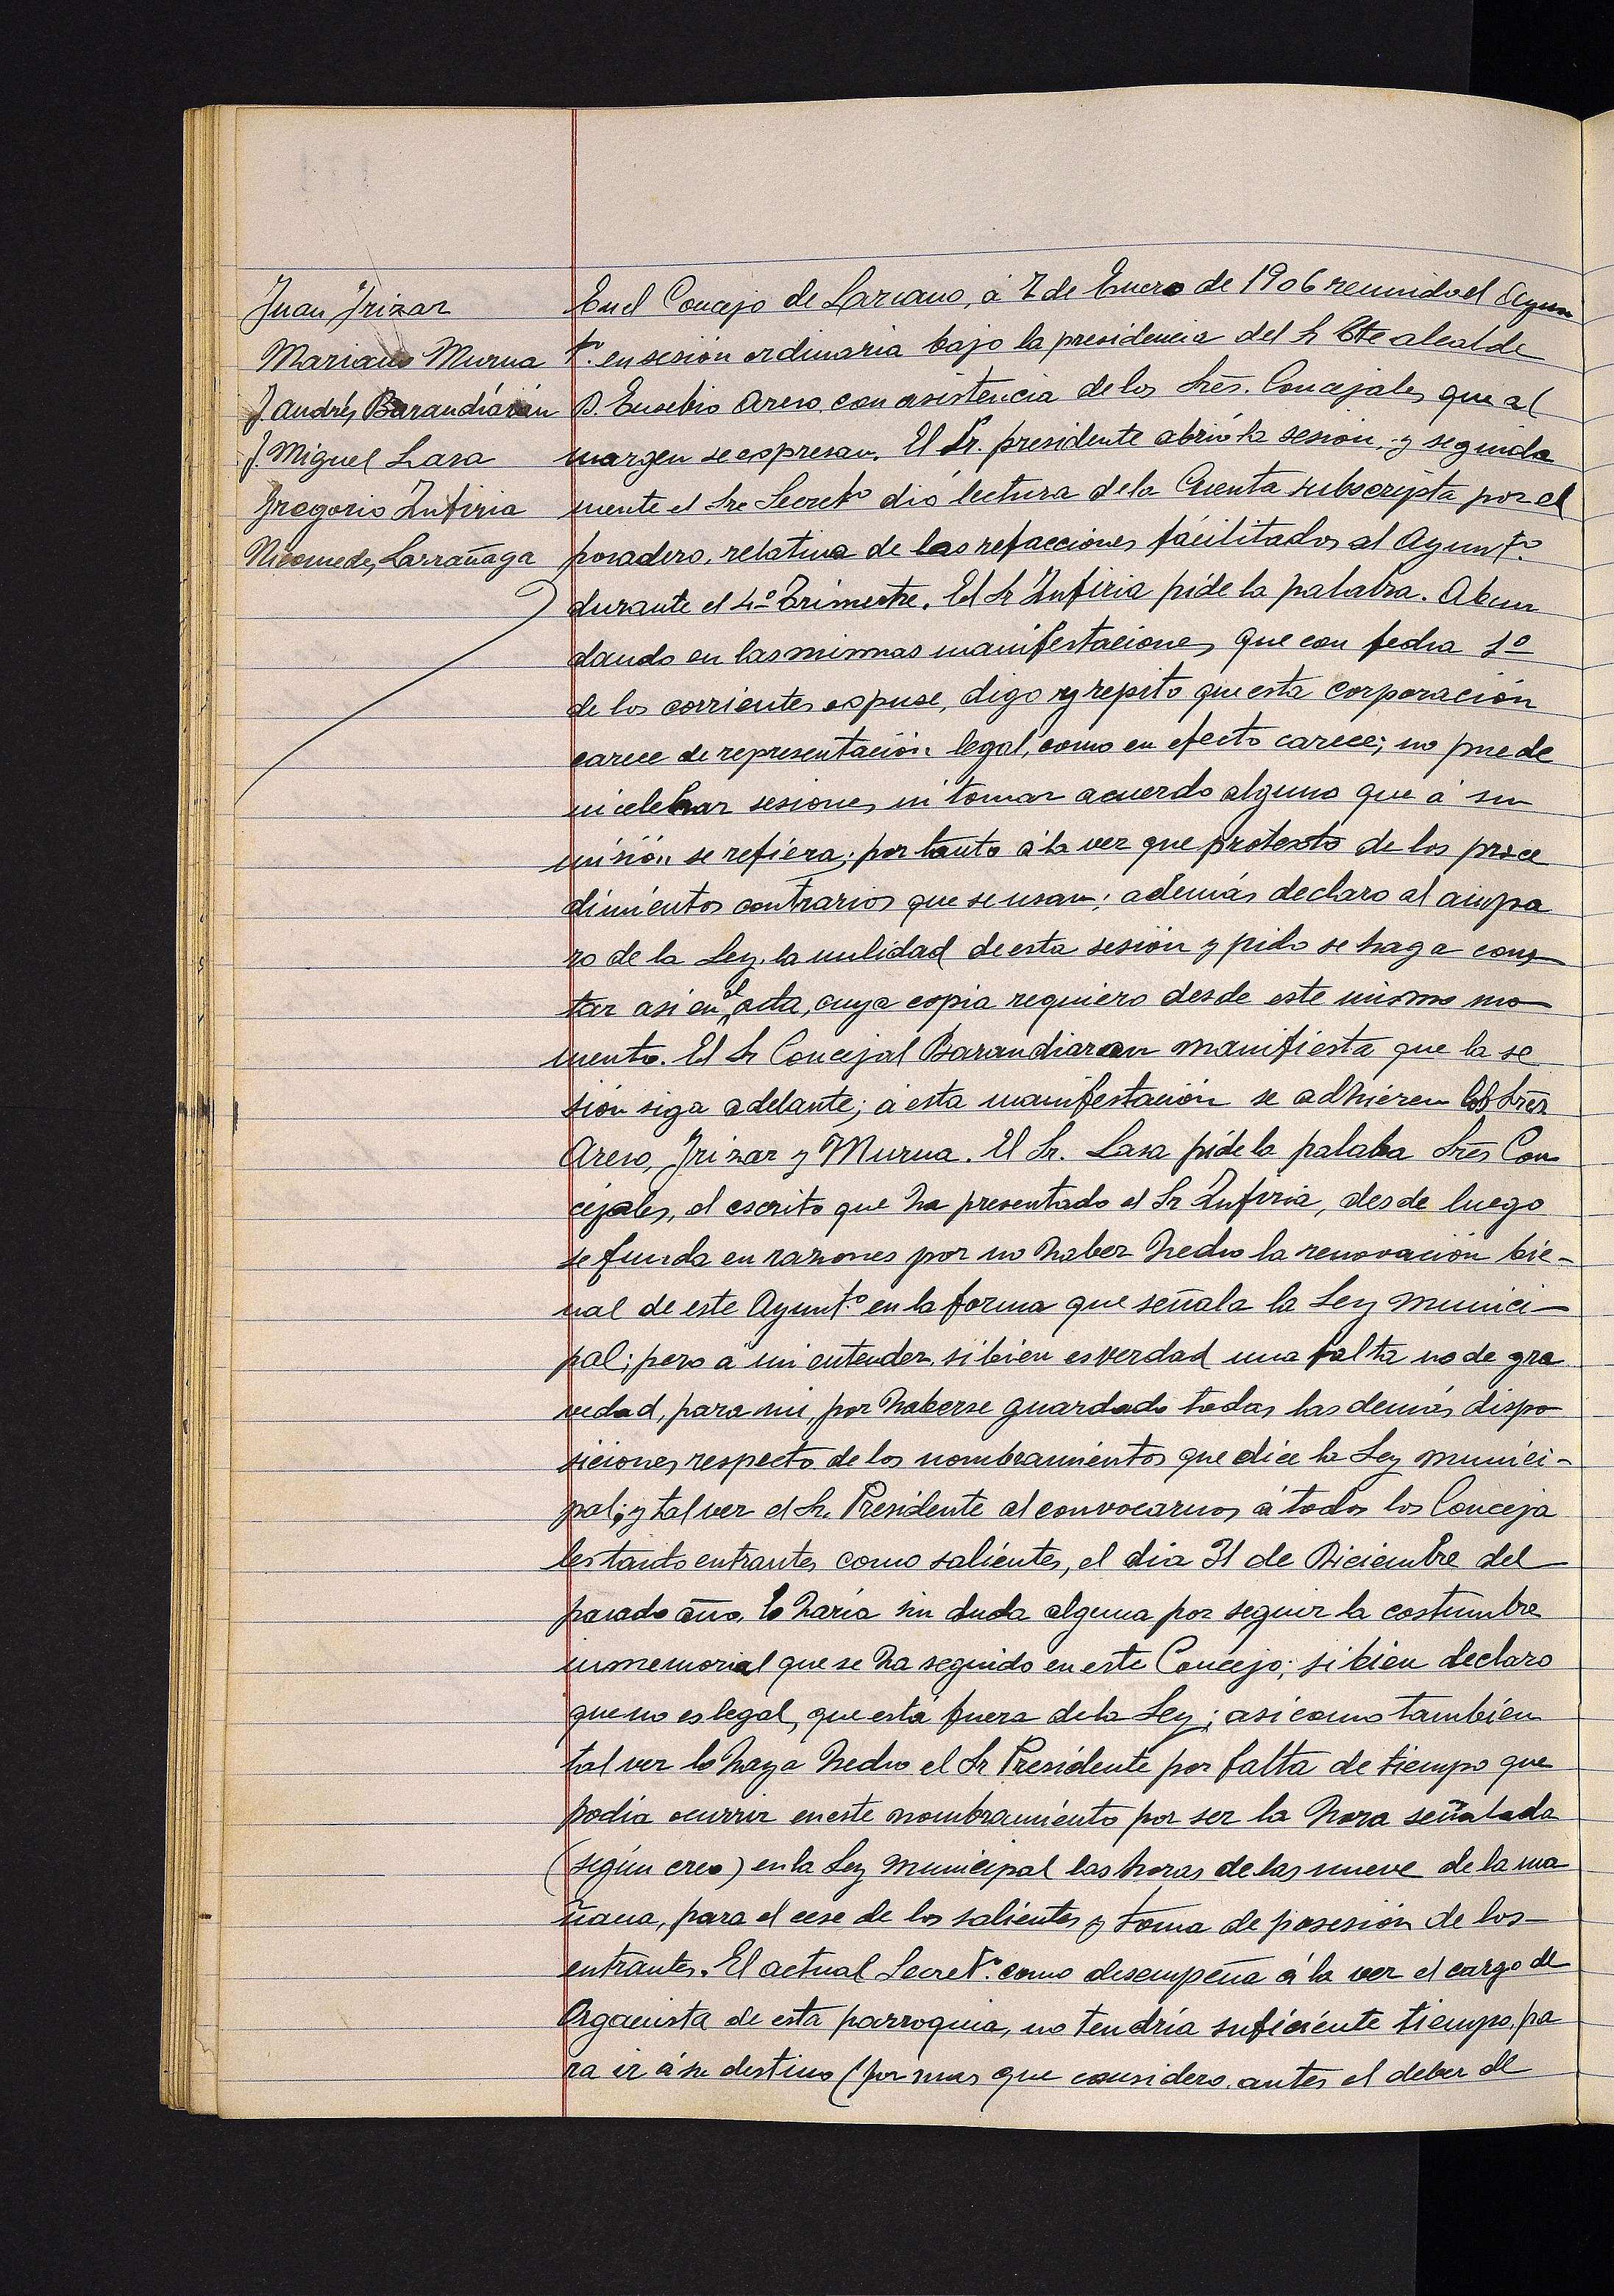 Juan Irizar
Mariano Murua
J. Andrés Barandiarán
J. Miguel Lasa
Gregorio Zufiria
Nicomedes Larrañaga
En el Concejo de Lazcano, á 7 de Enero de 1906 reunido el Ayun
tº. en sesión ordinaria bajo la presidencia del Sr Tte alcalde
D. Eusebio Areso, con asistencia de los Sres. Concejales que al
margen se espresan. El Sr. presidente abrió la sesión, y seguida
mente el Sr Secretº dió lectura de la Cuenta subscripta por el
posadero, relativa de las refacciones facilitados al Ayuntº.
durante el 4º Trimestre. El Sr Zufiria pide la palabra. Abun
dando en las mismas manifestaciones que con fecha 1º
de los corrientes espuse, digo y repito que esta corporación
carece de representación legal, como en efecto carece; no puede
ni celebrar sesiones ni tomar acuerdo alguno que á su
misión se refiera; por tanto á la vez que protesto de los proce
dimientos contrarios que se usan; además declaro al ampa
ro de la Ley, la nulidad de esta sesión y pido se haga cons
tar asi en el acta, cuya copia requiero desde este mismo mo
mento. El Sr Concejal Barandiaran manifiesta que la se
sión siga adelante; á esta manifestación se adhieren los Sres
Areso, Irizar y Murua. El Sr. Lasa pide la palabra Sres Con
cejales, el escrito que ha presentado el Sr Zufiria, desde luego
se funda en razones por no haber hecho la renovación bie-
nal de este Ayuntº en la forma que señala la Ley munici-
pal; pero á mi entender, si bien es verdad una falta no de gra
vedad, para mi, por haberse guardado todas las demás dispo
siciones respecto de los nombramientos que dice la Ley munici-
pal; y tal vez el Sr. Presidente al convocarnos á todos los Conceja
les tanto entrantes como salientes, el dia 31 de Diciembre del
pasado año, lo haria sin duda alguna por seguir la costumbre
inmemorial que se ha seguido en este Concejo; si bien declaro
que no es legal, que está fuera de la Ley; asi como también
tal vez lo haya hecho el Sr Presidente por falta de tiempo que
podia ocurrir en este nombramiento por ser la hora señalada
(según creo) en la Ley municipal las horas de las nueve de la ma
ñana, para el cese de los salientes y toma de posesión de los
entrantes. El actual Secretº. como desempeña á la vez el cargo de
Organista de esta parroquia, no tendria suficiente tiempo, pa
ra ir á su destino (por mas que considero, antes el deber de